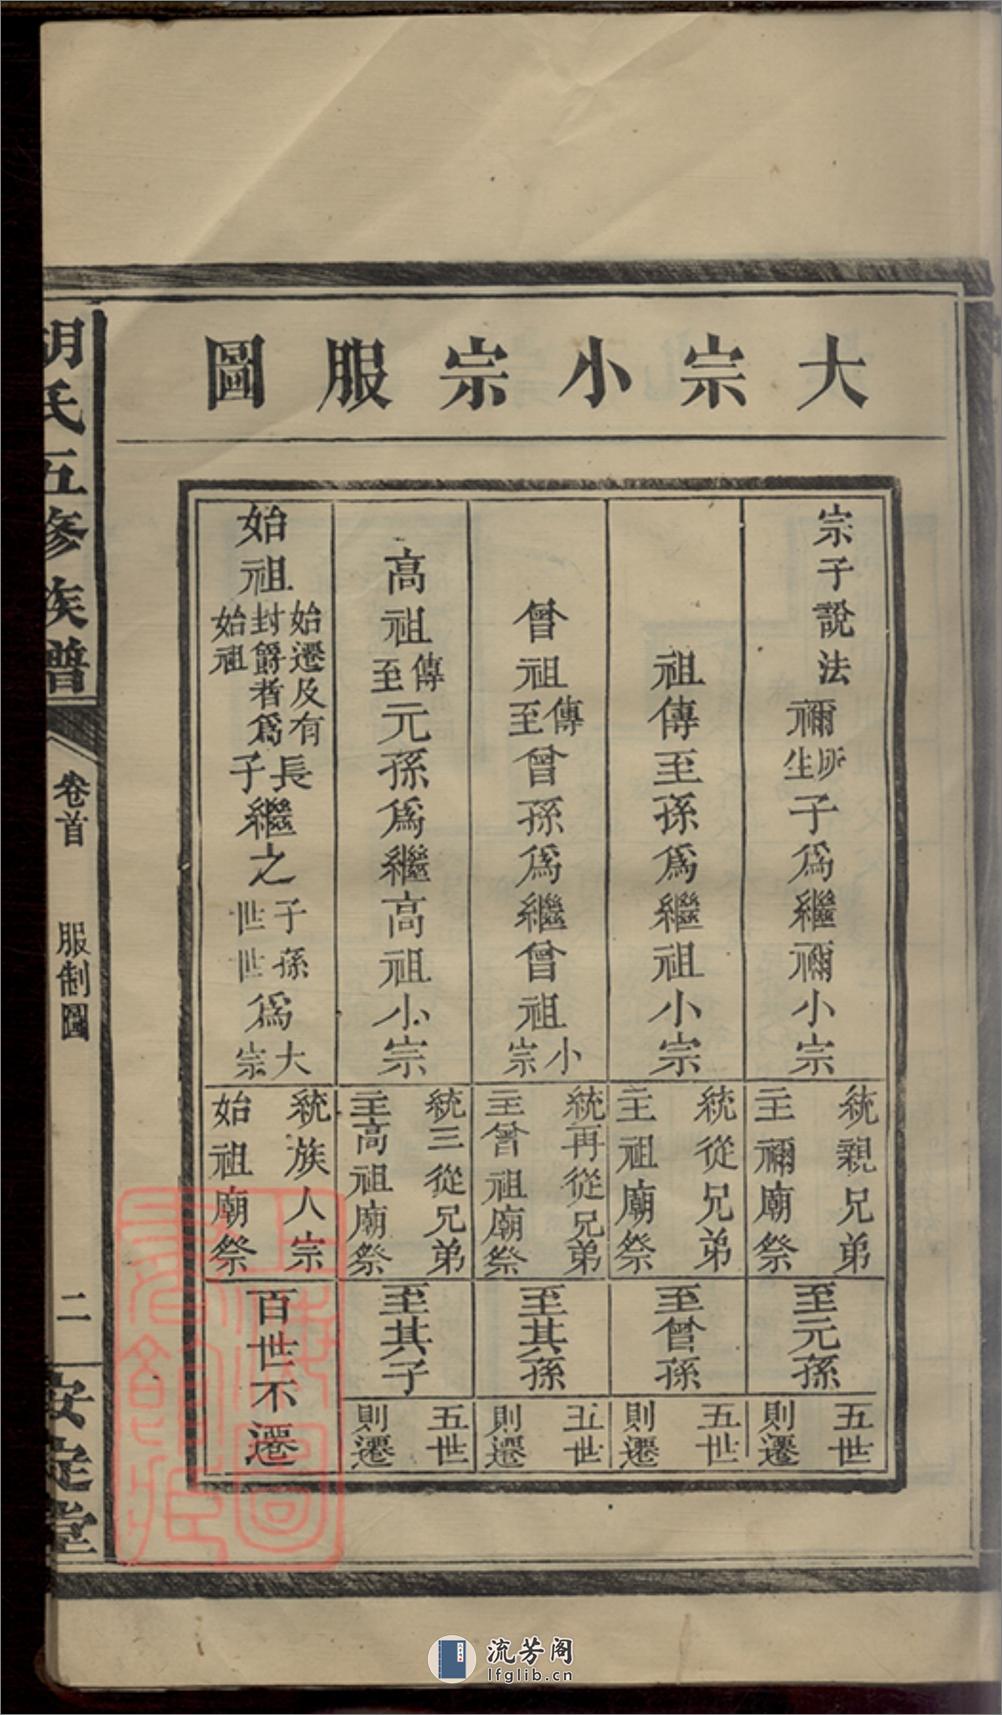 大宗小宗服圖
宗子說法禰所生子爲繼禰小宗
統親兄弟
主禰廟祭
至元孫
五世
則遷
祖傳至孫爲繼祖小宗
統從兄弟
主祖廟祭
至曾孫
五世
則遷
曾祖傳至曾孫爲繼曾祖小宗
統再從兄弟
主曾祖廟祭
至其孫
五世
則遷
高祖傳至元孫爲繼高祖小宗
統三從兄弟
主高祖廟祭
至其子
五世
則遷
始祖始遷及有封爵者爲始祖長子繼之子孫世世爲大宗
統族人宗
始祖廟祭
百世不遷
胡氏五修族譜
卷首
服制圖
二
安定堂
上海圖書館藏
流芳阁
lfglib.cn